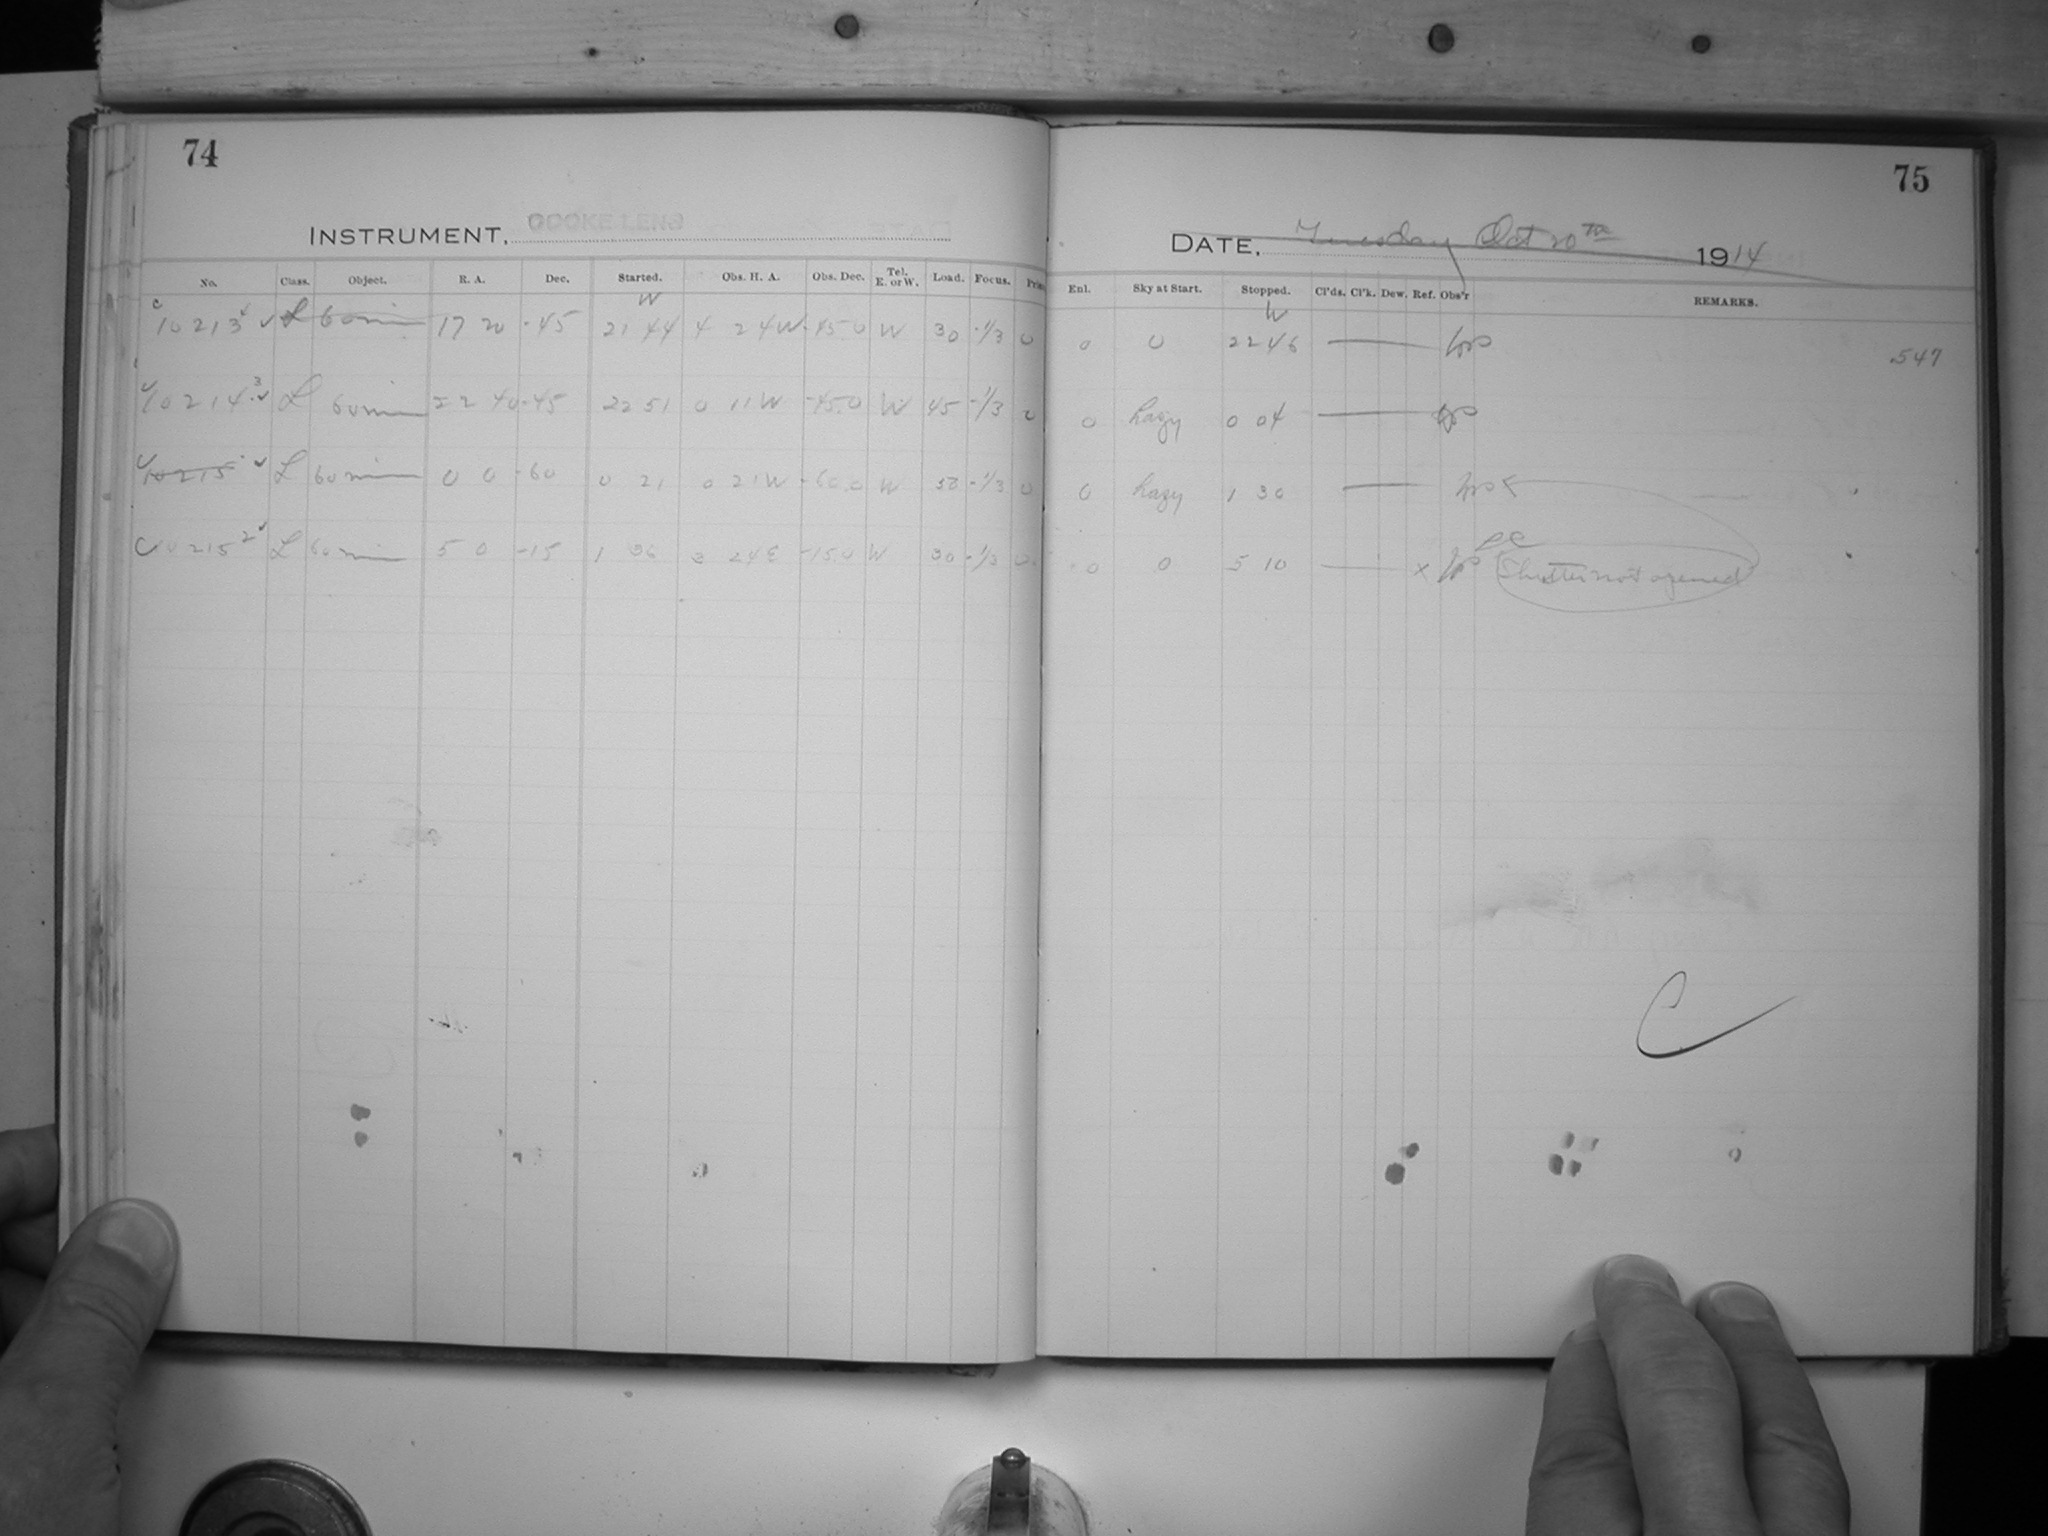 74
INSTRUMENT, COOKE LENS
No. Class. Object. R. A. Dec. Started. Obs. H. A. Obs. Dec. Tel. E. or W. Load. Focus.
W
C 10213 L 60 min 17 20 -45 21 44 4 24W -45.0 W 30 -1/3 0
C 10214 3 L 60 min 22 40 -45 22 51 0 11W -45.0 W 45 -1/3 0
10215 L 60 min 0 0 -60 0 21 0 21W -60.0 W -1/3 0
C 10215 2 L 60 min 5 0 -15 1 36 3 24E -15.0 W 30 -1/3 0
75
DATE, Tuesday Oct 20TH 1914
Enl. Sky at Start. Stopped. Cl'ds. Cl'k. Dew. Ref. Obs'r REMARKS.
W
0 0 22 46 .547
0 hazy 0 04
0 hazy 1 30
0 0 5 10 x Shutter not opened
C